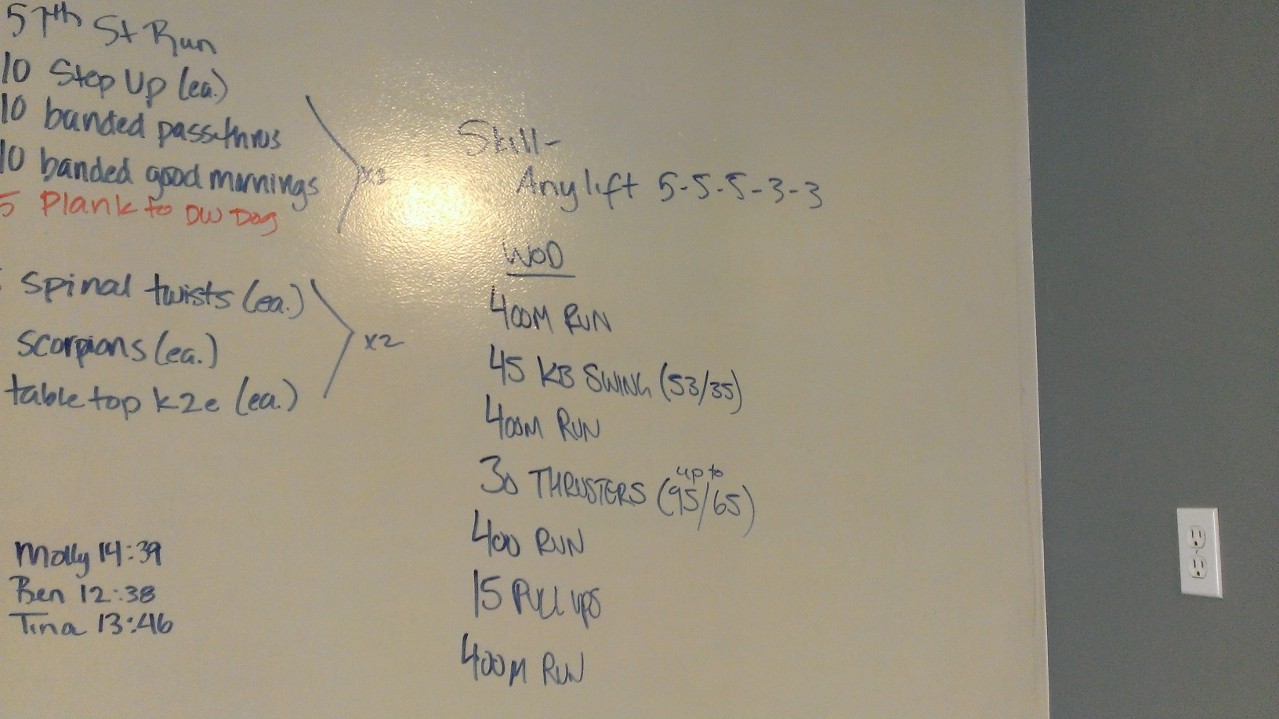 57th St Run
10 Step Up (ea.)
10 banded passthrus
10 banded good mornings
5 Plank to DW Dog
spinal twists (ea.)
x2
scorpions (ea.)
table top k2e (ea.)
Molly 14:39
Ben 12:38
Tina 13:46
Skill-
Any lift 5-5-5-3-3
WOD
400M RUN
45 KB SWING (53/35)
400M RUN
30 THRUSTERS (up to 95/65)
400 RUN
15 PULL UPS
400M RUN